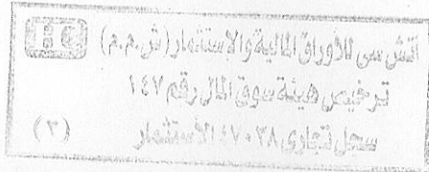 اتش سى للأوراق المالية والاستثمار (ش.م.م)
ترخيص هيئة سوق المال رقم ١٤٧
سجل تجارى ٤٧٠٣٨ الاستثمار
(٣)